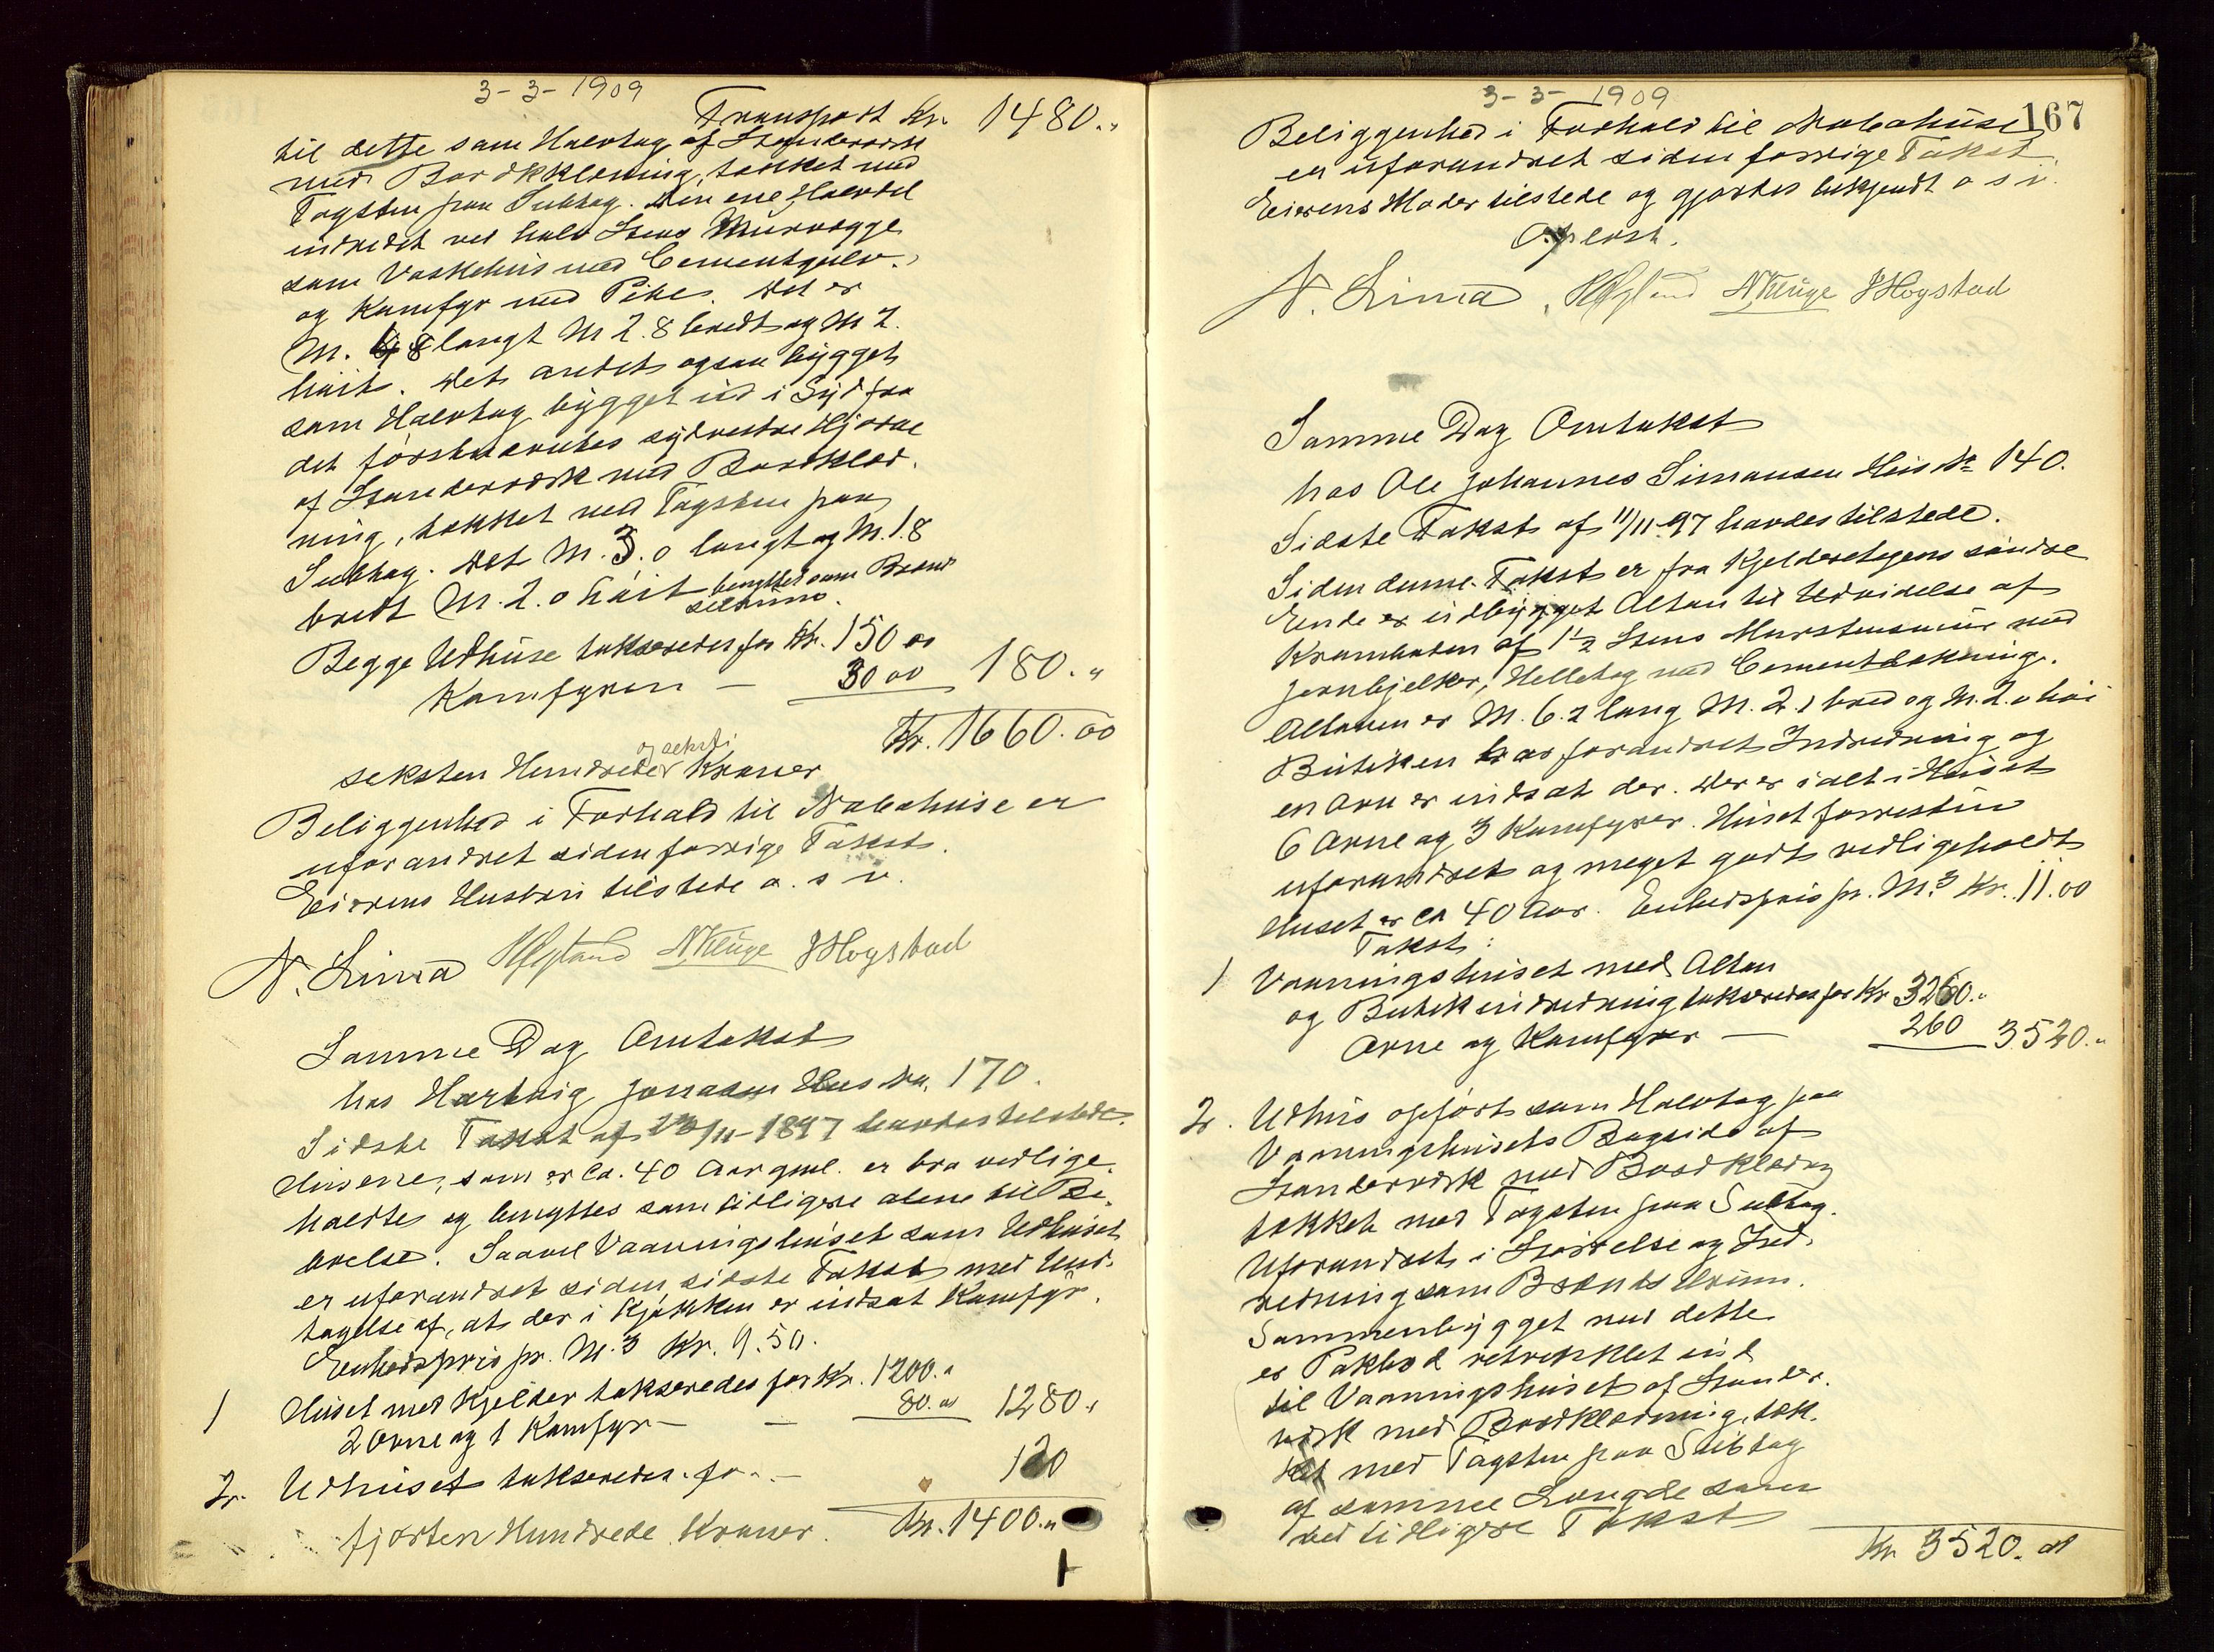 3-3-1909
Transport Kr. 1480.„
til dette som Halvtag af Stenderværk
med Bordklædning, tækket med
Tagsten paa Subtag. Den ene Halvdel
indredet ved halv Stens Murvægge
som Vaskehus med Cementgulv
og Kamfyr med Pibe. Det er
M. 8 langt M 2.8 bredt og M 2.
høit. Det andet ogsaa bygget
som Halvtag bygget ud i Syd fra
det førstnævntes sydvestre Hjørne
af Stenderværk med Bordklæd-
ning, tækket med Tagsten paa
Subtag. Det M. 3.0 langt og M. 1.8
bredt M. 2.0 høit benyttet som Brænd-
selrum.
Begge Udhuse takseredes for Kr. 150 00
Kamfyren — 30 00 180.„
Kr. 1660.00
seksten Hundrede og seksti Kroner
Beliggenhed i Forhold til Nabohuse er
uforandret siden forrige Takst.
Eierens Hustru tilstede o. s v.
N. Lima HHegland NKluge JHogstad
Samme Dag Omtakst
hos Hartvig Jonassen Hus No. 170.
Sidste Takst af 23/11-1897 havdes tilstede.
Husene, som er ca. 40 Aar gml. er bra vedlige-
holdte og benyttes som tidligere alene til Be-
boelse. Saavel Vaaningshuset som Udhuset
er uforandret siden sidste Takst med Und-
tagelse af, at der i Kjøkken er indsat Kamfyr.
Enhedspris pr. M.3 Kr. 9.50.
1 Huset med Kjelder takseredes for Kr. 1200.„
2 Ovne og 1 Kamfyr — — 80.00 1280.„
2. Udhuset takseredes for — 120
fjorten Hundrede Kroner. Kr. 1400.„
3-3-1909
167
Beliggenhed i Forhold til Nabohuse
er uforandret siden forrige Takst.
Eierens Moder tilstede og gjordes bekjendt o s v.
Oplæst.
N. Lima, HHegland NKluge JHogstad
Samme Dag Omtakst
hos Ole Johannes Simonsen Hus No 140.
Sidste Takst af 11/11-97 havdes tilstede.
Siden denne Takst er fra Kjelderetagens søndre
Ende er udbygget Altan til Udvidelse af
Kramboden af 1½ Stens Murstensmur med
Jernbjelker, Helletag med Cementdækning.
Altanen er M. 6.2 lang M. 2.1 bred og M. 2.0 høi
Butiken har forandret Indredning og
en Ovn er indsat der. Der er ialt i Huset
6 Ovne og 3 Kamfyrer. Huset forresten
uforandret og meget godt vedligeholdt
Huset er ca 40 Aar. Enhedspris pr. M.3 Kr. 11.00
Takst:
1 Vaaningshuset med Altan
og Butikindredning takseredes for Kr 3260.„
Ovne og Kamfyrer — 260 3520.„
2. Udhus opført som Halvtag paa
Vaaningshusets Bagside af
Stenderværk med Bordklædng
tækket med Tagsten paa Subtag.
Uforandret i Størrelse og Ind-
redning som Brændselrum.
Sammenbygget med dette
er Pakbod retvinklet ind
til Vaaningshuset af Stender-
værk med Bordklædning, tæk-
ket med Tagsten paa Subtag
af samme Længde som
ved tidligere Takst
Kr 3520.00